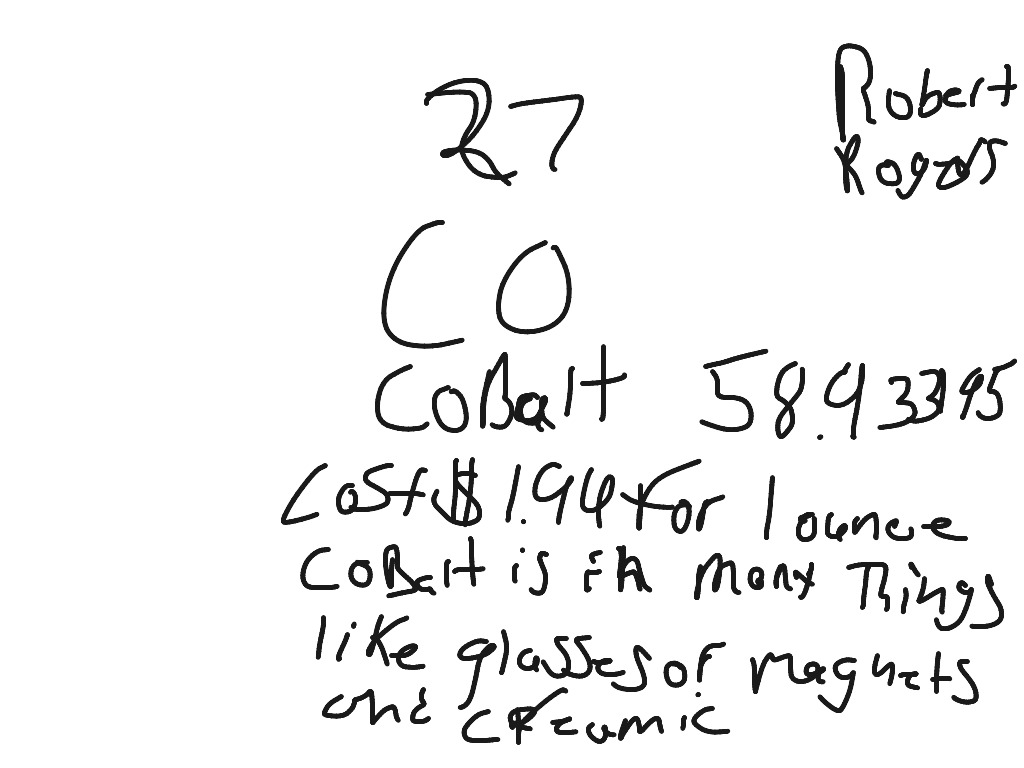 27
Robert
Rogors
CO
CoBalt 58.933195
Cost $1.94 For 1 ounce
CoBalt is in many Things
like glasses or magnets
and creamic